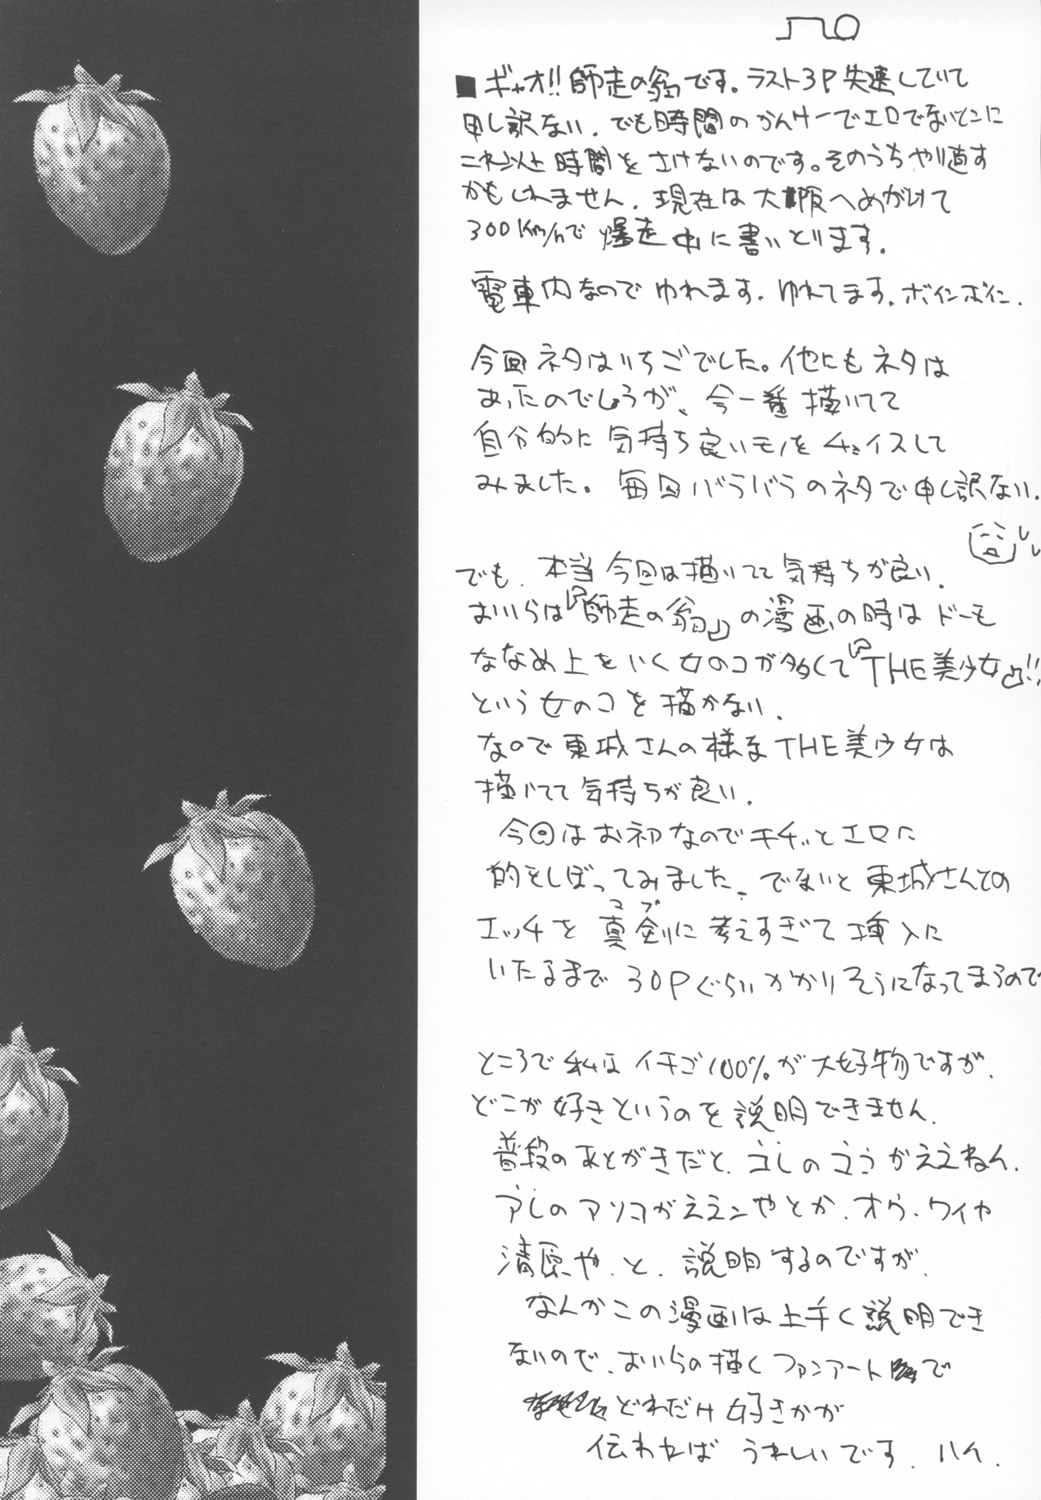 ■ギャオ!!師走の翁です。ラスト3P失速していて
申し訳ない。でも時間のかんけーでエロでないとこに
これ以上時間をさけないのです。そのうちやり直す
かもしれません。現在は大阪へめがけて
300Km/hで爆走中に書いとります。
電車内なのでゆれます。ゆれてます。ボインボイン。
今回ネタはいちごでした。他にもネタは
あったのでしょうが、今一番描いてて
自分的に気持ち良いモノをチョイスして
みました。毎回バラバラのネタで申し訳ない。
でも、本当今回は描いてて気持ちが良い。
おいらは『師走の翁』の漫画の時はドーも
ななめ上をいく女のコが多くて『THE美少女』!!
という女のコを描かない。
なので東城さんの様なTHE美少女は
描いてて気持ちが良い。
今回はお初なのでキチッとエロに
的をしぼってみました。でないと東城さんでの
エッチを真剣に考えすぎて挿入に
マブ
いたるまで30Pぐらいかかりそうになってまうので
ところで私はイチゴ100%が大好物ですが、
どこが好きというのを説明できません。
普段のあとがきだと、コレのココがええねん。
アレのアソコがええンやとか、オウ、ワイや
清原や、と、説明するのですが、
なんかこの漫画は上手く説明でき
ないので、おいらの描くファンアートで
どれだけ好きかが
伝われば うれしいです。ハイ。